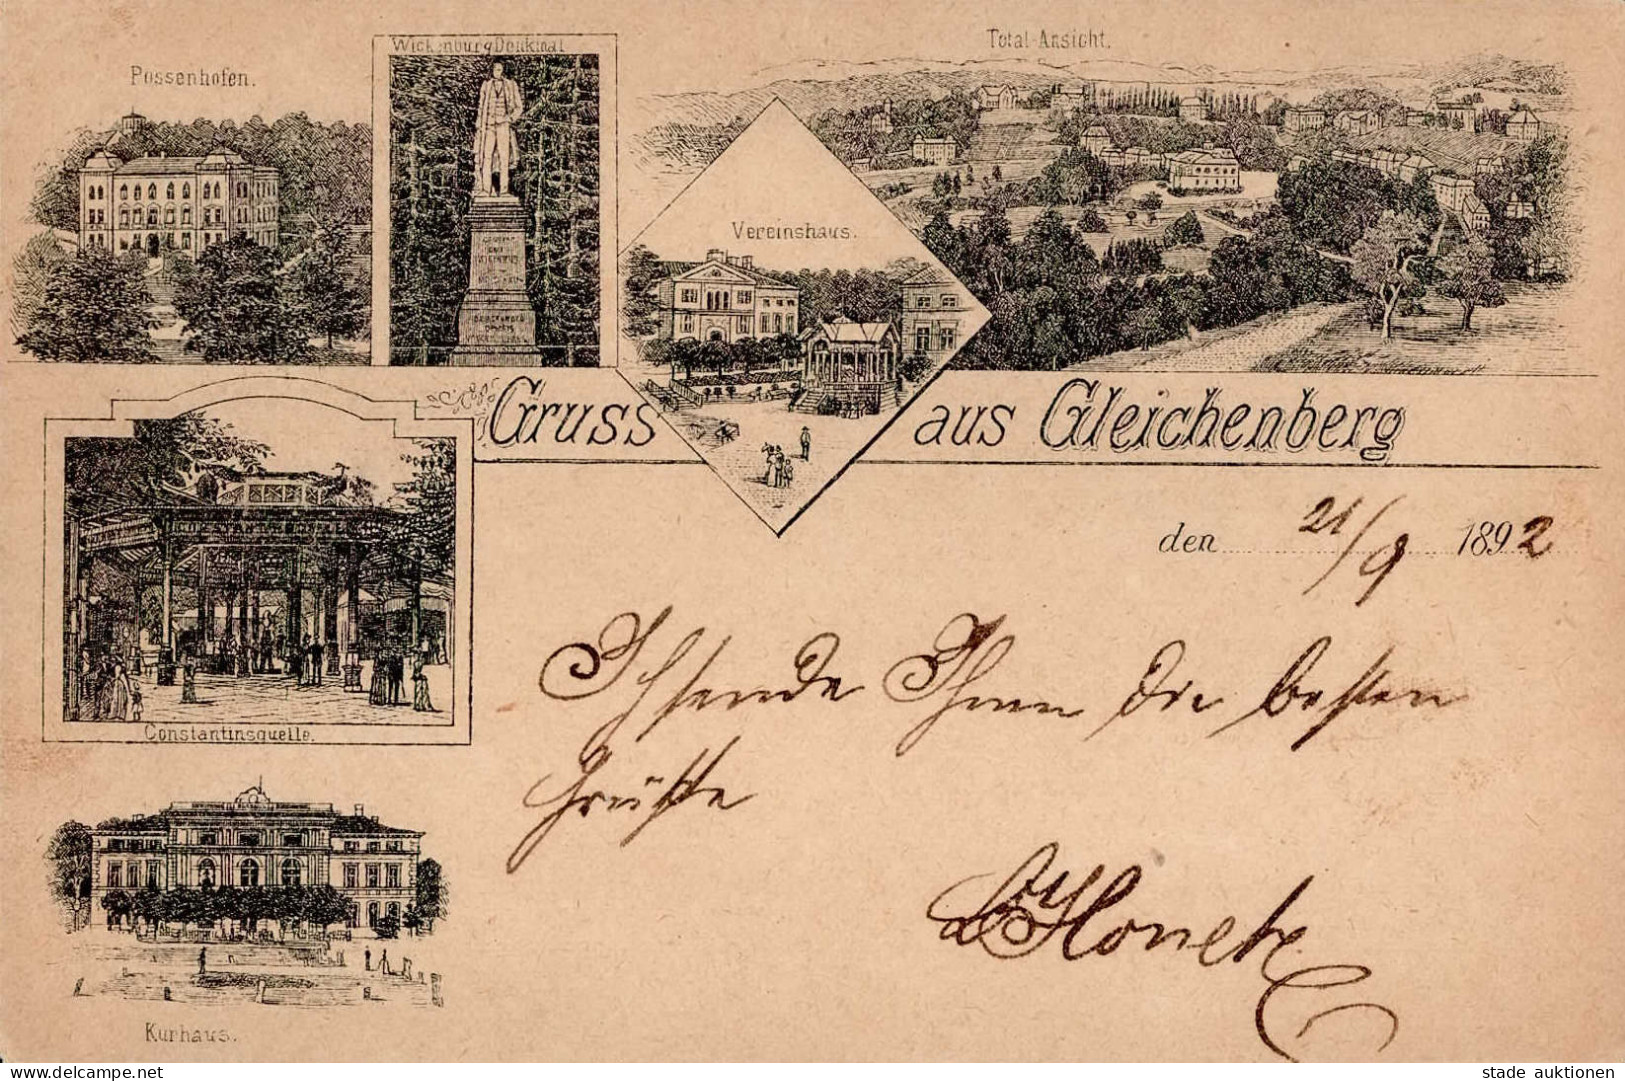 Possenhofen.
Wickenburg Denkmal
Total-Ansicht.
Vereinshaus.
Gruss aus Gleichenberg
Constantinsquelle.
den 21/9 1892
Ich sende Ihnen die besten
Grüße
Kurhaus.
delcampe.net
stade auktionen